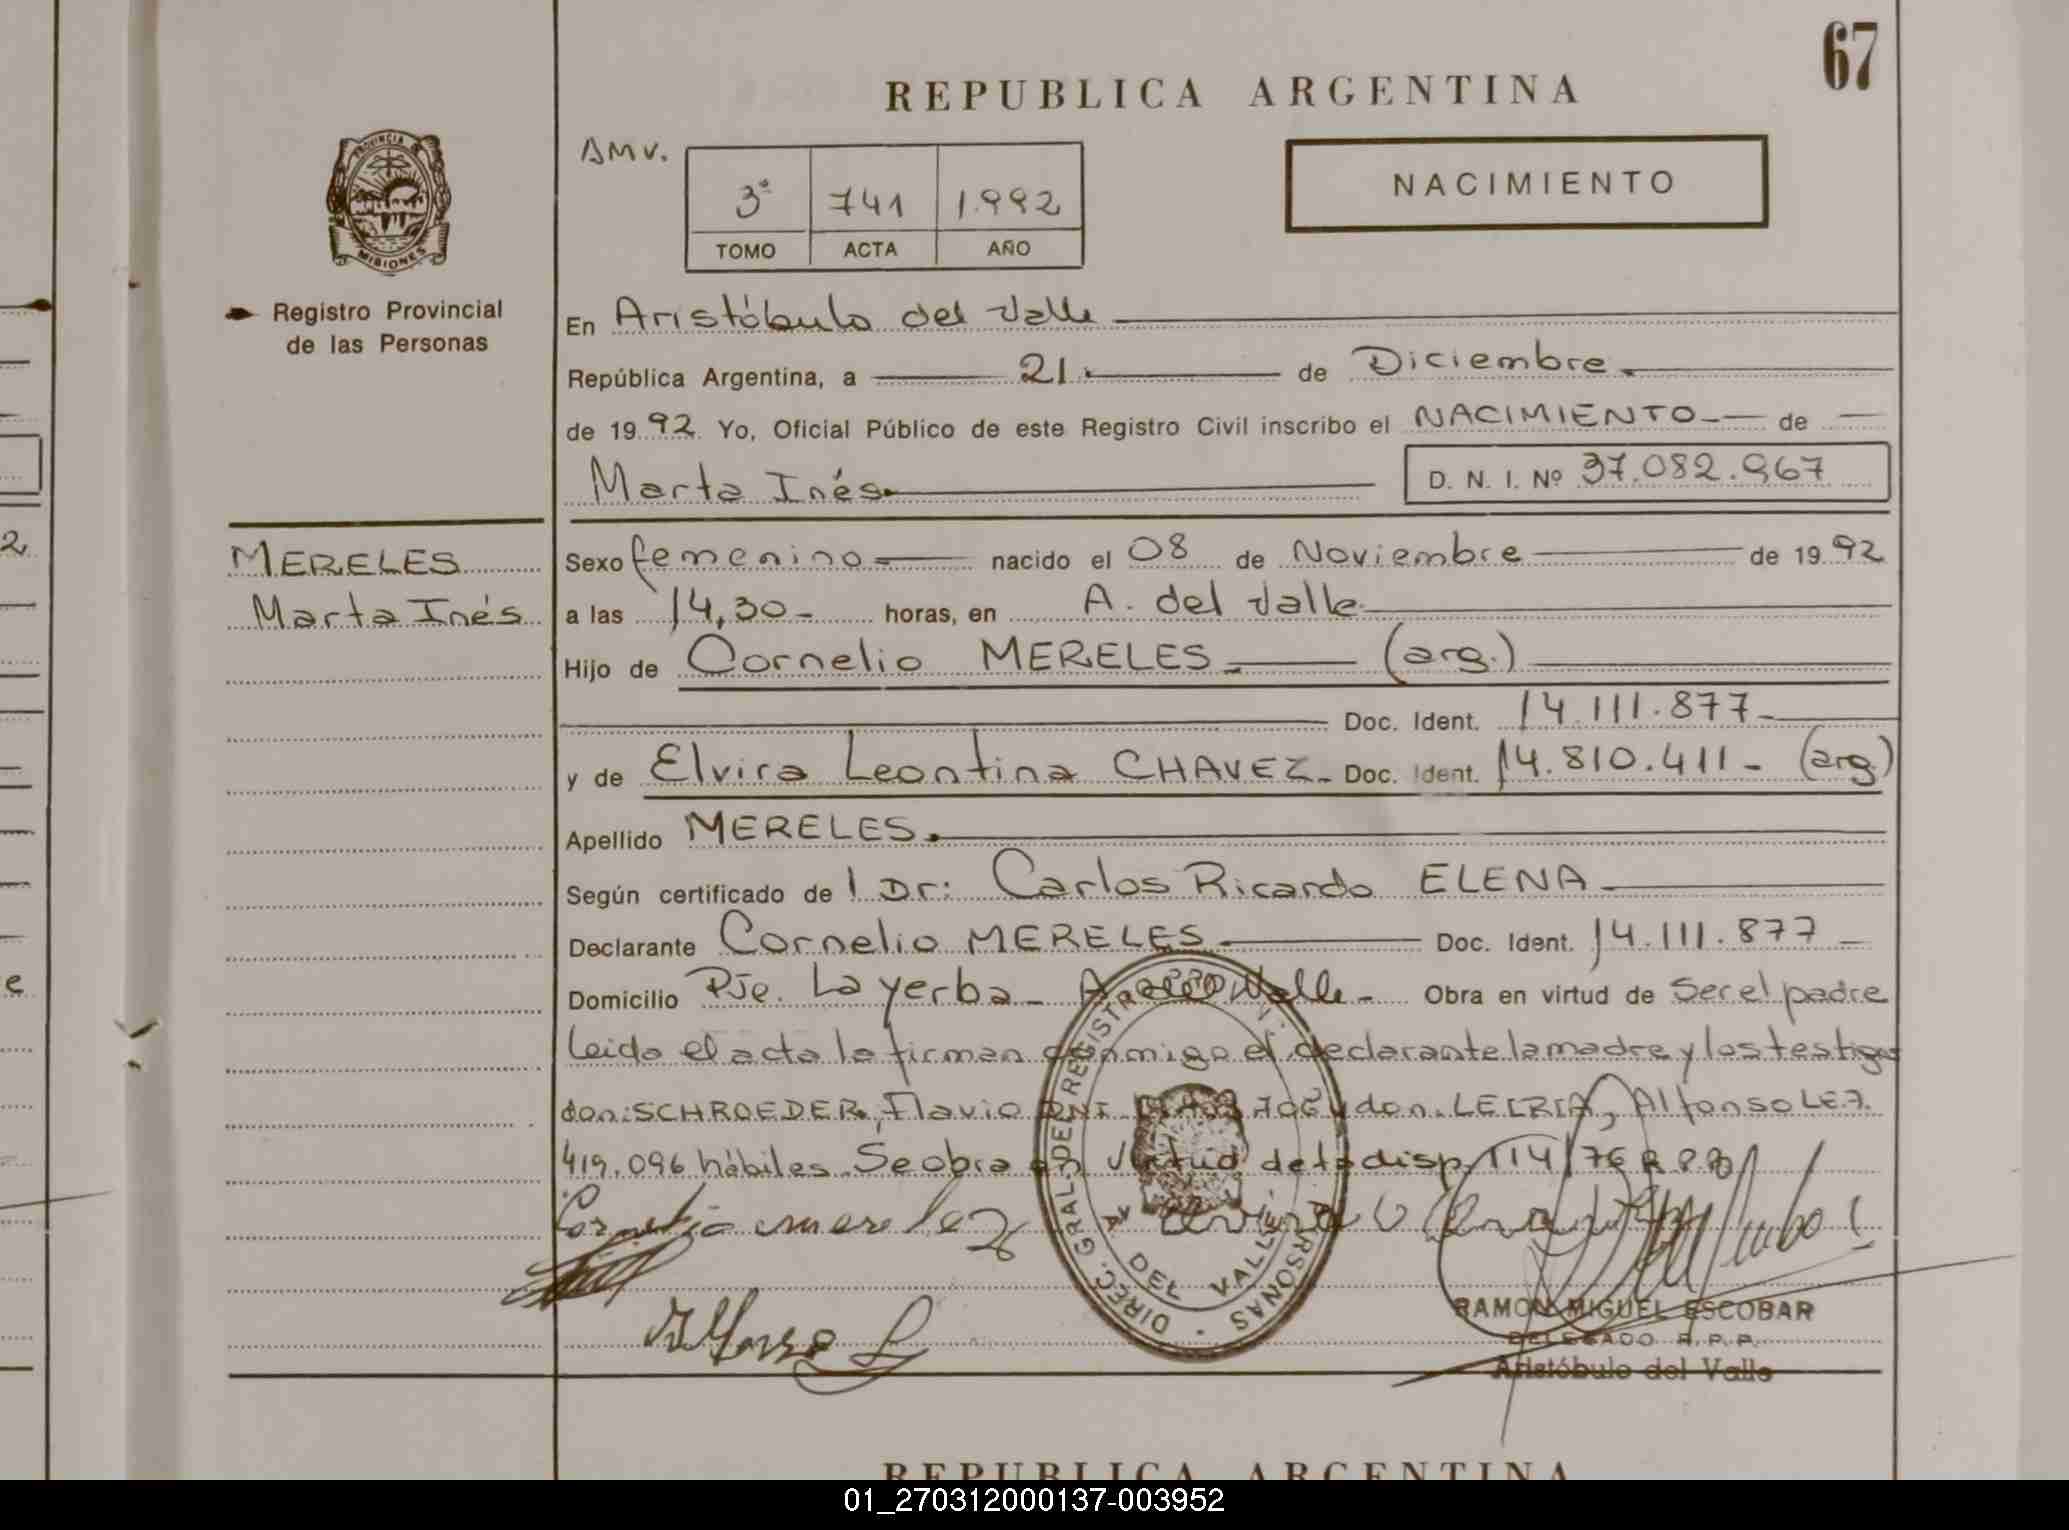 67
REPUBLICA ARGENTINA
AMV.
3ª 741 1.992
TOMO ACTA AÑO
NACIMIENTO
PROVINCIA DE
MISIONES
Registro Provincial
de las Personas
En Aristóbulo del Valle
República Argentina, a 21. de Diciembre.
de 1992 Yo, Oficial Público de este Registro Civil inscribo el NACIMIENTO de
Marta Inés D. N. I. Nº 37.082.967
MERELES
Marta Inés
Sexo femenino nacido el 08 de Noviembre de 1992
a las 14,30- horas, en A. del Valle
Hijo de Cornelio MERELES (arg.)
Doc. Ident. 14.111.877
y de Elvira Leontina CHAVEZ Doc. Ident. 14.810.411- (arg)
Apellido MERELES.
Según certificado de l Dr: Carlos Ricardo ELENA
Declarante Cornelio MERELES Doc. Ident. 14.111.877
Domicilio Pje. La yerba Valle Obra en virtud de Ser el padre
Leido el acta la firman conmigo el declarante la madre y los testigos
don: SCHROEDER, Flavio DNI y don. Alfonso L.E.7.
419.096 hábiles. Se obra en virtud de la disp. 114/76
Cornelio merelez
Alfonso L
DIREC. GRAL. DEL REGISTRO PERSONAS
DEL VALLE
RAMON MIGUEL ESCOBAR
DELEGADO R.P.P.
Aristóbulo del Valle
REPUBLICA ARGENTINA
01_270312000137-003952